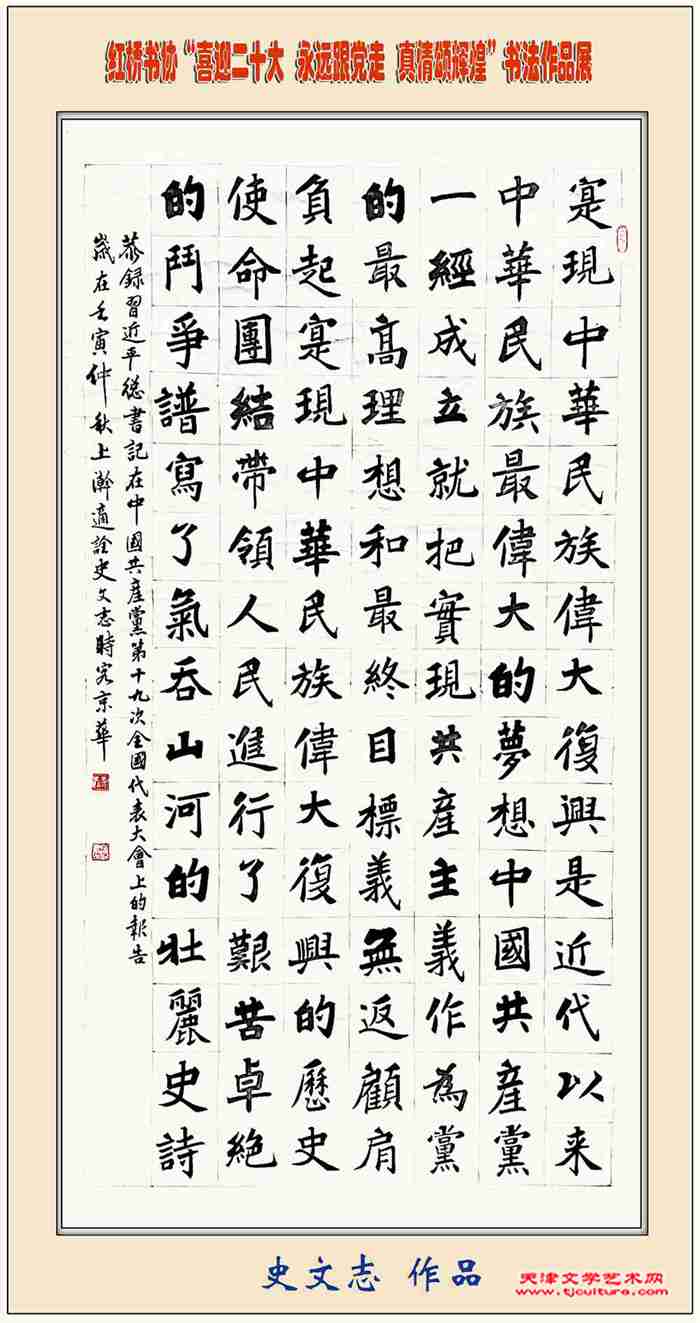 红桥书协“喜迎二十大 永远跟党走 真情颂辉煌”书法作品展
寔現中華民族偉大復興是近代以来
中華民族最偉大的夢想中國共産黨
一經成立就把實現共産主義作為黨
的最髙理想和最終目標義無返顧肩
負起寔現中華民族偉大復興的歷史
使命團結帶領人民進行了艱苦卓絶
的鬥爭譜寫了氣吞山河的壯麗史詩
恭錄習近平総書記在中國共産黨第十九次全國代表大會上的報告
歲在壬寅仲秋上澣適詮史文志時客京華
史文志 作品
天津文学艺术网
www.tjculture.com